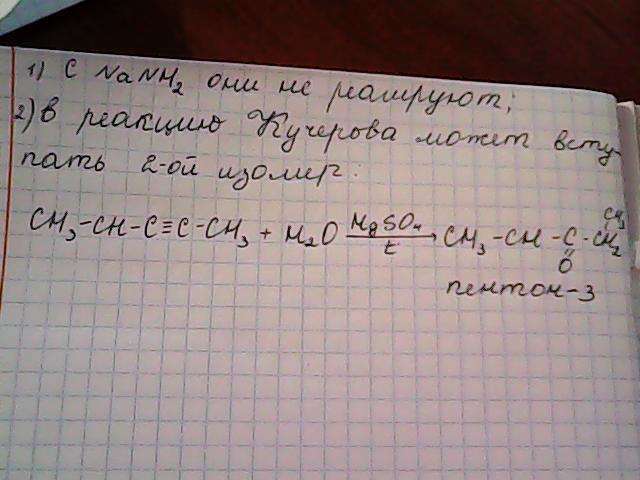 1) С NaNH₂ они не реагируют;
2) В реакцию Кучерова может всту-
пать 2-ой изомер:
CH₃-CH-C≡C-CH₃ + H₂O HgSO₄ t → CH₃-CH-C-CH₂ CH₃
O
пентон-3